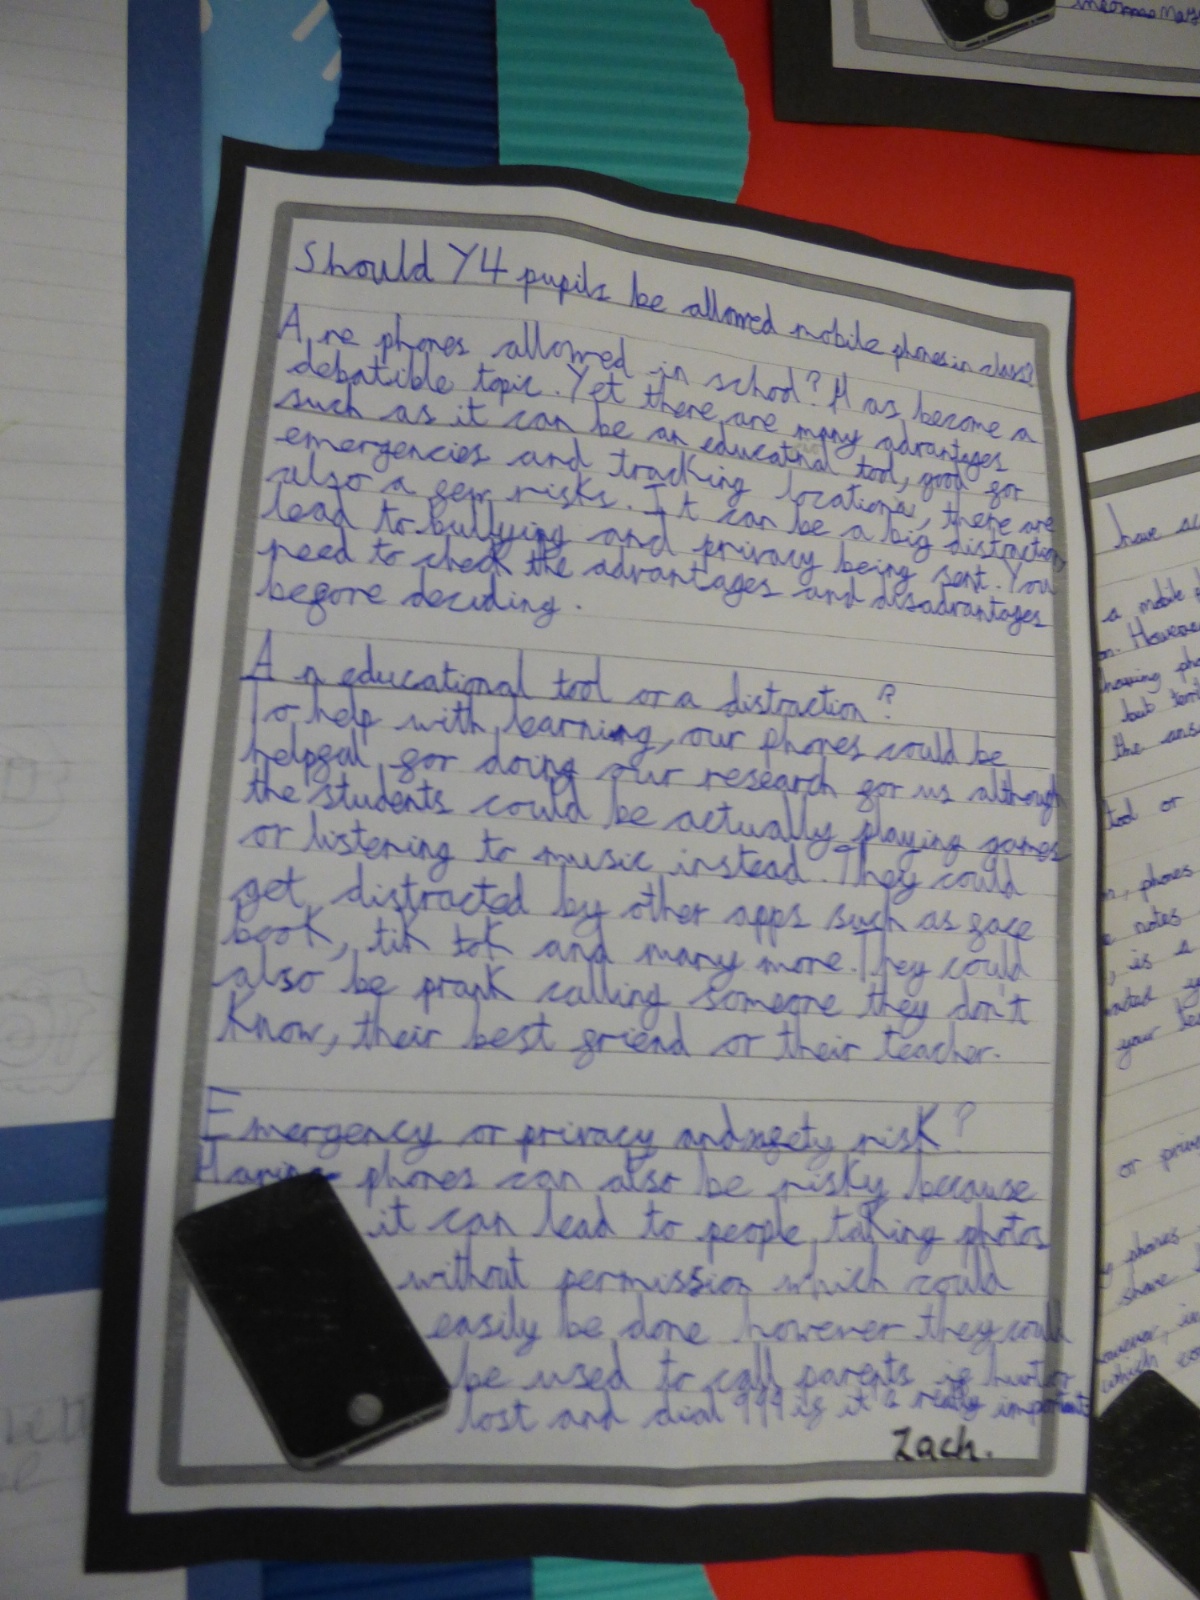 Should Y4 pupils be allowed mobile phones in class?
Are phones allowed in school? Has become a
debatible topic. Yet there are many advantages
such as it can be an educatinal tool, good for
emergencies and tracking locations, there are
also a few risks. It can be a big distraction,
lead to bullying and privacy being sent. You
need to check the advantages and disadvantages
before deciding.
An educational tool or a distraction?
To help with learning, our phones could be
helpful for doing our research for us although
the students could be actually playing games
or listening to music instead. They could
get distracted by other apps such as face
book, tik tok and many more. They could
also be prank calling someone they don't
know, their best friend or their teacher.
Emergency or privacy and safety risk?
Having phones can also be risky because
it can lead to people taking photos
without permission which could
easily be done however they could
be used to call parents if hurt or
lost and dial 999 if it's really important
Zach.
have
a mobile
on. However
having
but
the
tool or
phones
notes
is a
your
or
phones
share
which